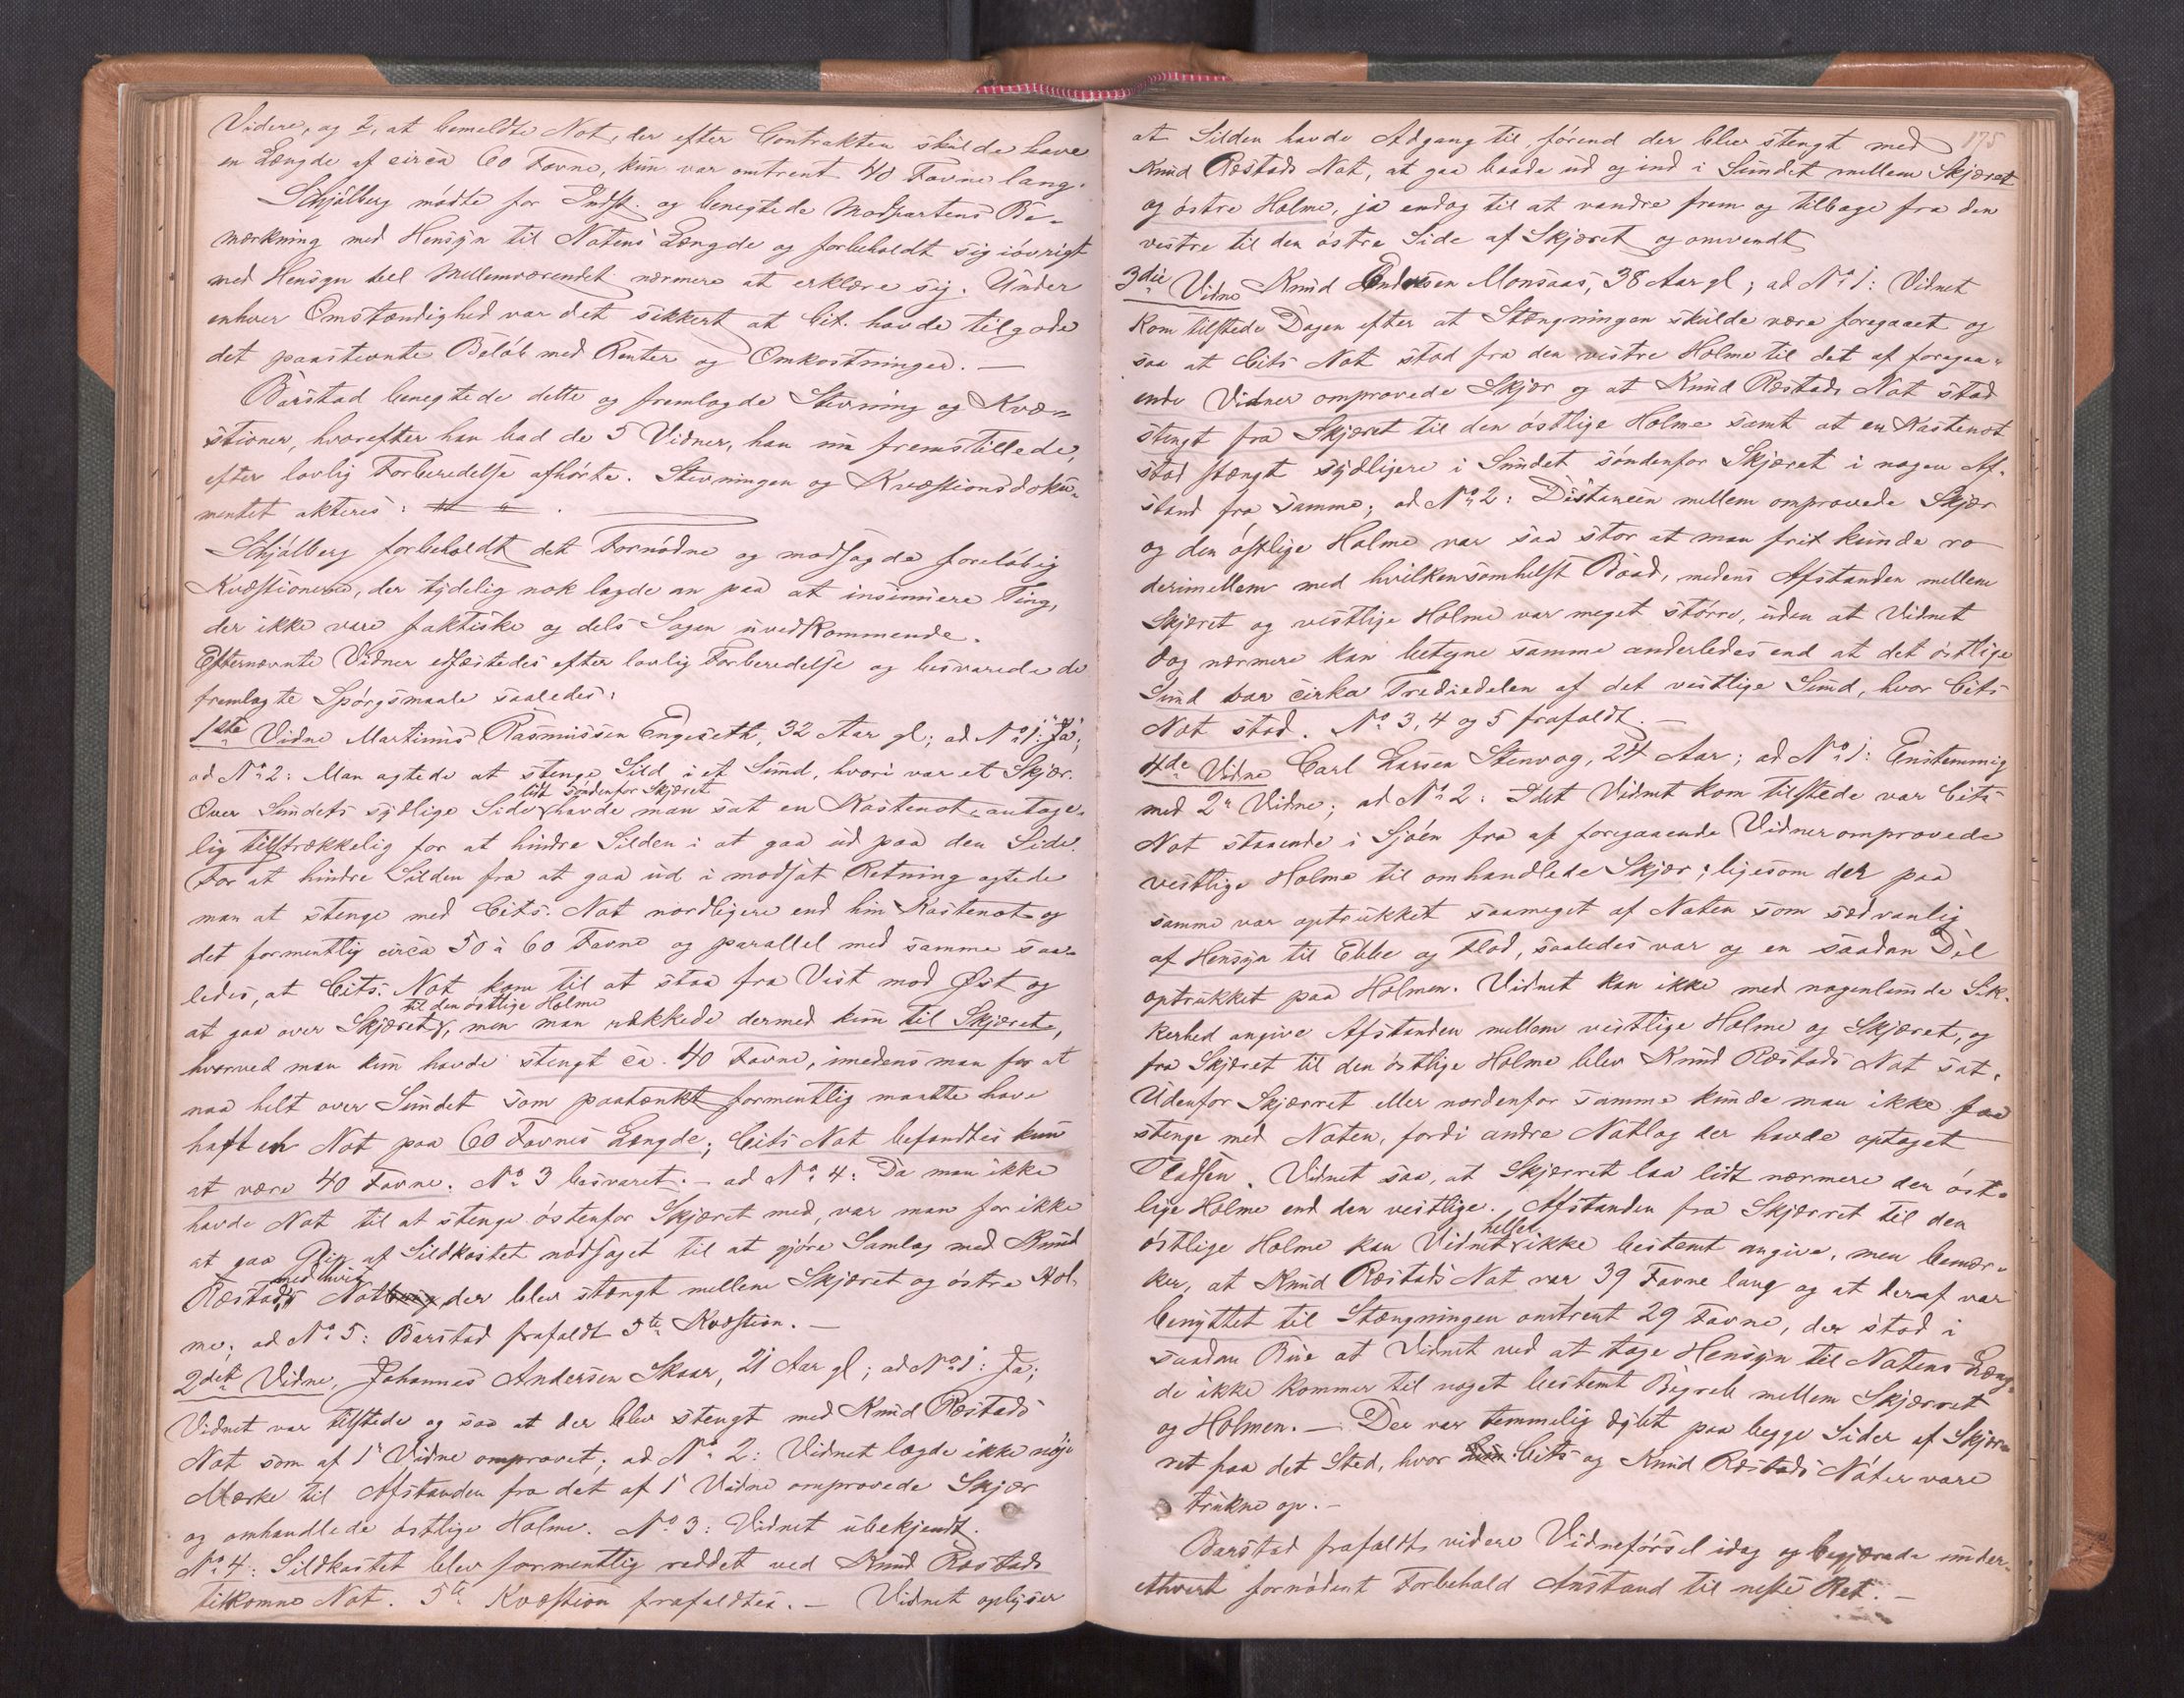 Videre, og 2, at bemeldte Not, der efter Contrakten skulde have
en Længde af circa 60 Favne, kun var omtrent 40 Favne lang.
Schjølberg mødte for Indst. og benegtede Modpartens Be-
mærkning med Hensyn til Notens Længde og forbeholdt sig iøvrigt
med Hensyn til Mellemværendet nærmere at erklære sig. Under
enhver Omstændighed var det sikkert at Cit. havde tilgode
det paastevnte Beløb med Renter og Omkostninger. —
Barstad benegtede dette og fremlagde Stevning og Kvæ-
stioner, hvorefter han bad de 5 Vidner, han nu fremstillede,
efter lovlig Forberedelse afhørte. Stevningen og Kvæstionsdoku-
mentet akteres:
Schjølberg forbeholdt det Fornødne og modsagde foreløbig
Kvæstionerne, der tydelig nok lagde an paa at insinuere Ting,
der ikke vare faktiske og dels Sagen uvedkommende.
Efternævnte Vidner edfæstedes efter lovlig Forberedelse og besvarede de
fremlagte Spørgsmaale saaledes:
1ste Vidne Martinus Rasmussen Engeseth, 32 Aar gl; ad No 1: Ja;
ad No 2: Man agtede at stenge Sild i et Sund, hvori var et Skjær.
lidt søndenfor Skjæret
Over Sundets sydlige Side havde man sat en Kastenot antage-
lig tilstrækkelig for at hindre Silden i at gaa ud paa den Side.
For at hindre Silden fra at gaa ud i modsat Retning agtede
man at stenge med Cits. Not nordligere end hin Kastenot og
det formentlig circa 50 à 60 Favne og parallel med samme saa-
ledes, at Cits. Not kom til at staa fra Vest mod Øst og
til den østlige Holme
at gaa over Skjæret, men man rækkede dermed kun til Skjæret,
hvorved man kun havde stengt ca. 40 Favne, imedens man for at
naa helt over Sundet som paatænkt formentlig maatte have
haft en Not paa 60 Favnes Længde; Cits Not befandtes kun
at være 40 Favne. No 3 besvaret. — ad No 4: Da man ikke
havde Not til at stenge østenfor Skjæret med, var man for ikke
at gaa Glip af Sildkastet nødsaget til at gjøre Samlag med Knud
med hvis
Ræstads Not der blev stængt mellem Skjæret og østre Hol-
me; ad No 5: Barstad frafaldt 5te Kvæstion. —
2det Vidne, Johannes Andersen Skaar, 21 Aar gl; ad No 1: Ja;
Vidnet var tilstede og saa at der blev stengt med Knud Ræstads
Not som af 1 Vidne omprovet; ad No 2: Vidnet lagde ikke nøje
Mærke til Afstanden fra det af 1 Vidne omprovede Skjær
og omhandlede østlige Holme. No 3: Vidnet ubekjendt.
No 4: Sildkastet blev formentlig reddet ved Knud Ræstads
tilkomne Not. 5te Kvæstion frafaldtes. — Vidnet oplyser
175
at Silden havde Adgang til, førend der blev stengt med
Knud Ræstads Not, at gaa baade ud og ind i Sundet mellem Skjæret
og østre Holme, ja endog til at vandre frem og tilbage fra den
vestre til den østre Side af Skjæret og omvendt
3die Vidne Knud Endresen Monsaas, 38 Aar gl; ad No 1: Vidnet
kom tilstede Dagen efter at Stængningen skulde være foregaaet og
saa at Cits Not stod fra den vestre Holme til det af foregaa-
ende Vidner omprovede Skjær og at Knud Ræstads Not stod
stengt fra Skjæret til den østlige Holme samt at en Kastenot
stod stængt sydligere i Sundet søndenfor Skjæret i nogen Af-
stand fra samme; ad No 2: Distancen mellem omprovede Skjær
og den østlige Holme var saa stor at man frit kunde ro
derimellem med hvilkensomhelst Baad, medens Afstanden mellem
Skjæret og vestlige Holme var meget større, uden at Vidnet
dog nærmere kan betegne samme anderledes end at det østlige
Sund var cirka Trediedelen af det vestlige Sund, hvor Cits
Not stod. No 3, 4 og 5 frafaldt. —
4de Vidne Carl Larsen Stenvog, 24 Aar; ad No 1: Enstemmig
med 2 Vidne; ad No 2: Idet Vidnet kom tilstede var Cits
Not staaende i Sjøen fra af foregaaende Vidner omprovede
vestlige Holme til omhandlede Skjær; ligesom der paa
samme var optrukket saameget af Noten som sædvanlig
af Hensyn til Ebbe og Flod, saaledes var og en saadan Del
optrukket paa Holmen. Vidnet kan ikke med nogenlunde Sik-
kerhed angive Afstanden mellem vestlige Holme og Skjæret, og
fra Skjæret til den østlige Holme blev Knud Ræstads Not sat.
Udenfor Skjærret eller nordenfor samme kunde man ikke faa
stenge med Noten, fordi andre Notlag der havde optaget
Pladsen. Vidnet saa, at Skjærret laa lidt nærmere den øst-
lige Holme end den vestlige. Afstanden fra Skjærret til den
heller
østlige Holme kan Vidnet ikke bestemt angive, men bemær-
ker, at Knud Ræstads Not var 39 Favne lang og at deraf var
benyttet til Stængningen omtrent 29 Favne, der stod i
saadan Bue at Vidnet ved at tage Hensyn til Notens Læng-
de ikke kommer til noget bestemt Begreb mellem Skjærret
og Holmen. — Der var temmelig dybt paa begge Sider af Skjær-
ret paa det Sted, hvor Cits og Knud Ræstads Nøter vare
trukne op. —
Barstad frafaldt videre Vidneførsel idag og begjærede under
ethvert fornødent Forbehold Anstand til neste Ret. —